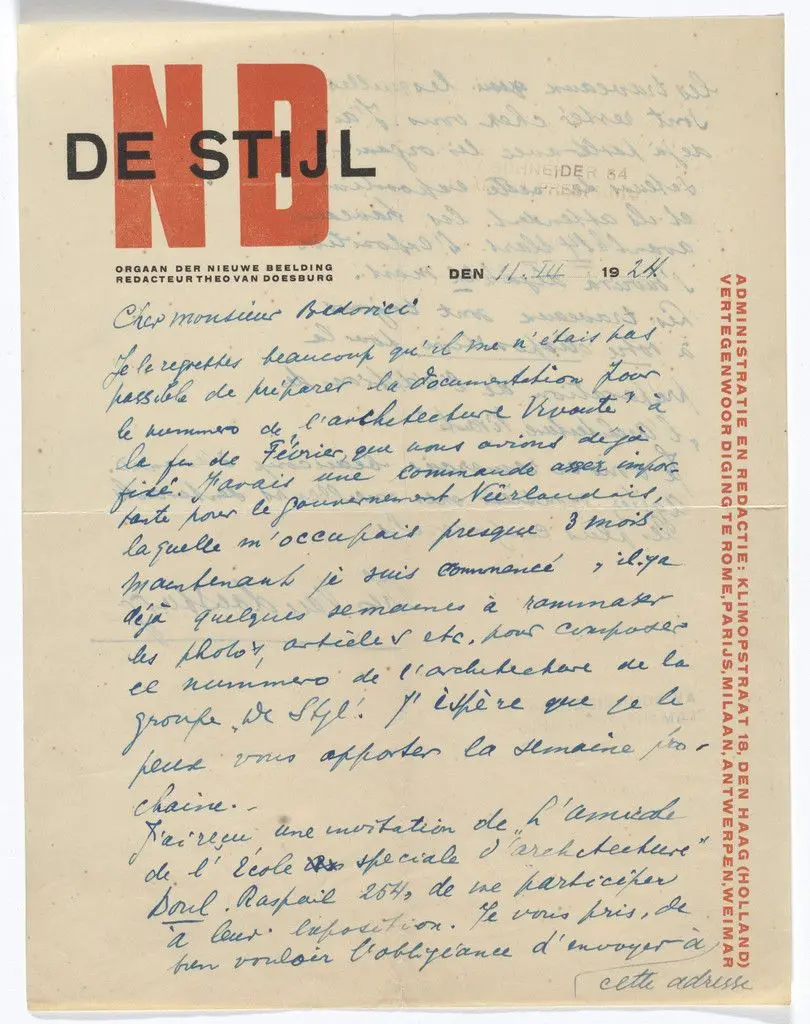 NB
DE STIJL
ORGAAN DER NIEUWE BEELDING
REDACTEUR THEO VAN DOESBURG
DEN 11.III 1924
ADMINISTRATIE EN REDACTIE: KLIMOPSTRAAT 18, DEN HAAG (HOLLAND)
VERTEGENWOORDIGING TE ROME, PARIJS, MILAAN, ANTWERPEN, WEIMAR
Cher monsieur Badovici
Je le regrettes beaucoup qu'il me n'étais pas
possible de préparer la documentation pour
le nummero de "l'architecture Vivante" à
la fin de Février, que nous avions dejà
fixé. J'avais une commande assez impor-
tante pour le gouvernement Néerlandais,
laquelle m'occupais presque 3 mois.
Maintenant je suis commencé, il y a
déjà quelques semaines à rammasser
les photo's, articles etc. pour composer
ce nummero de l'architecture de la
groupe "De Styl". J'éspère que je le
peux vous apporter la semaine pro-
chaine.-
J'ai reçu une invitation de "L'amicale
de l'École speciale d'architecture"
Boul. Raspail 254, de me participer
à leur exposition. Je vous pris, de
bien vouloir l'obligeance d'envoyer à
cette adresse